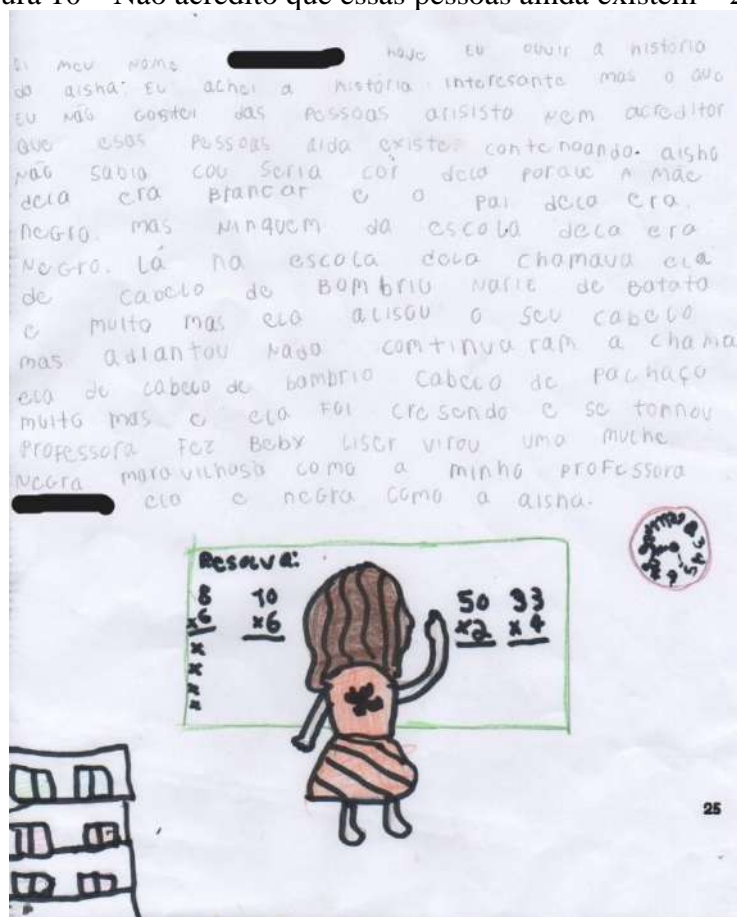 ura 10 – Não acredito que essas pessoas ainda existem – 2
oi meu nome hove eu ouvir a nistória
da aisha: Eu achei a história interesante mas o que
EU NÃO gostei das Pessoas arisisto nem acreditor
que esas Pessoas aida existe contenoando. aisha
não sabia cou seria cor dela porque A mãe
dela era Brancar e o pai dela era.
negro. mas ninquem da escola dela era
Negro. Lá na escola dela chamava ela
de cabelo de BomBriu Narie de Batata
e muito mas ela alisou o seu cabelo
mas adiantou nada comtinuaram a chama
ela de cabelo de bombrio cabelo de pachaço
muito mas e ela foi cresendo e se tonnou
Professora Fez Beby Liser virou uma muche
Negra maravilhosa como a minha professora
ela e negra como a aisha.
Resolva:
8 10 50 93
x6 x6 x2 x4
25